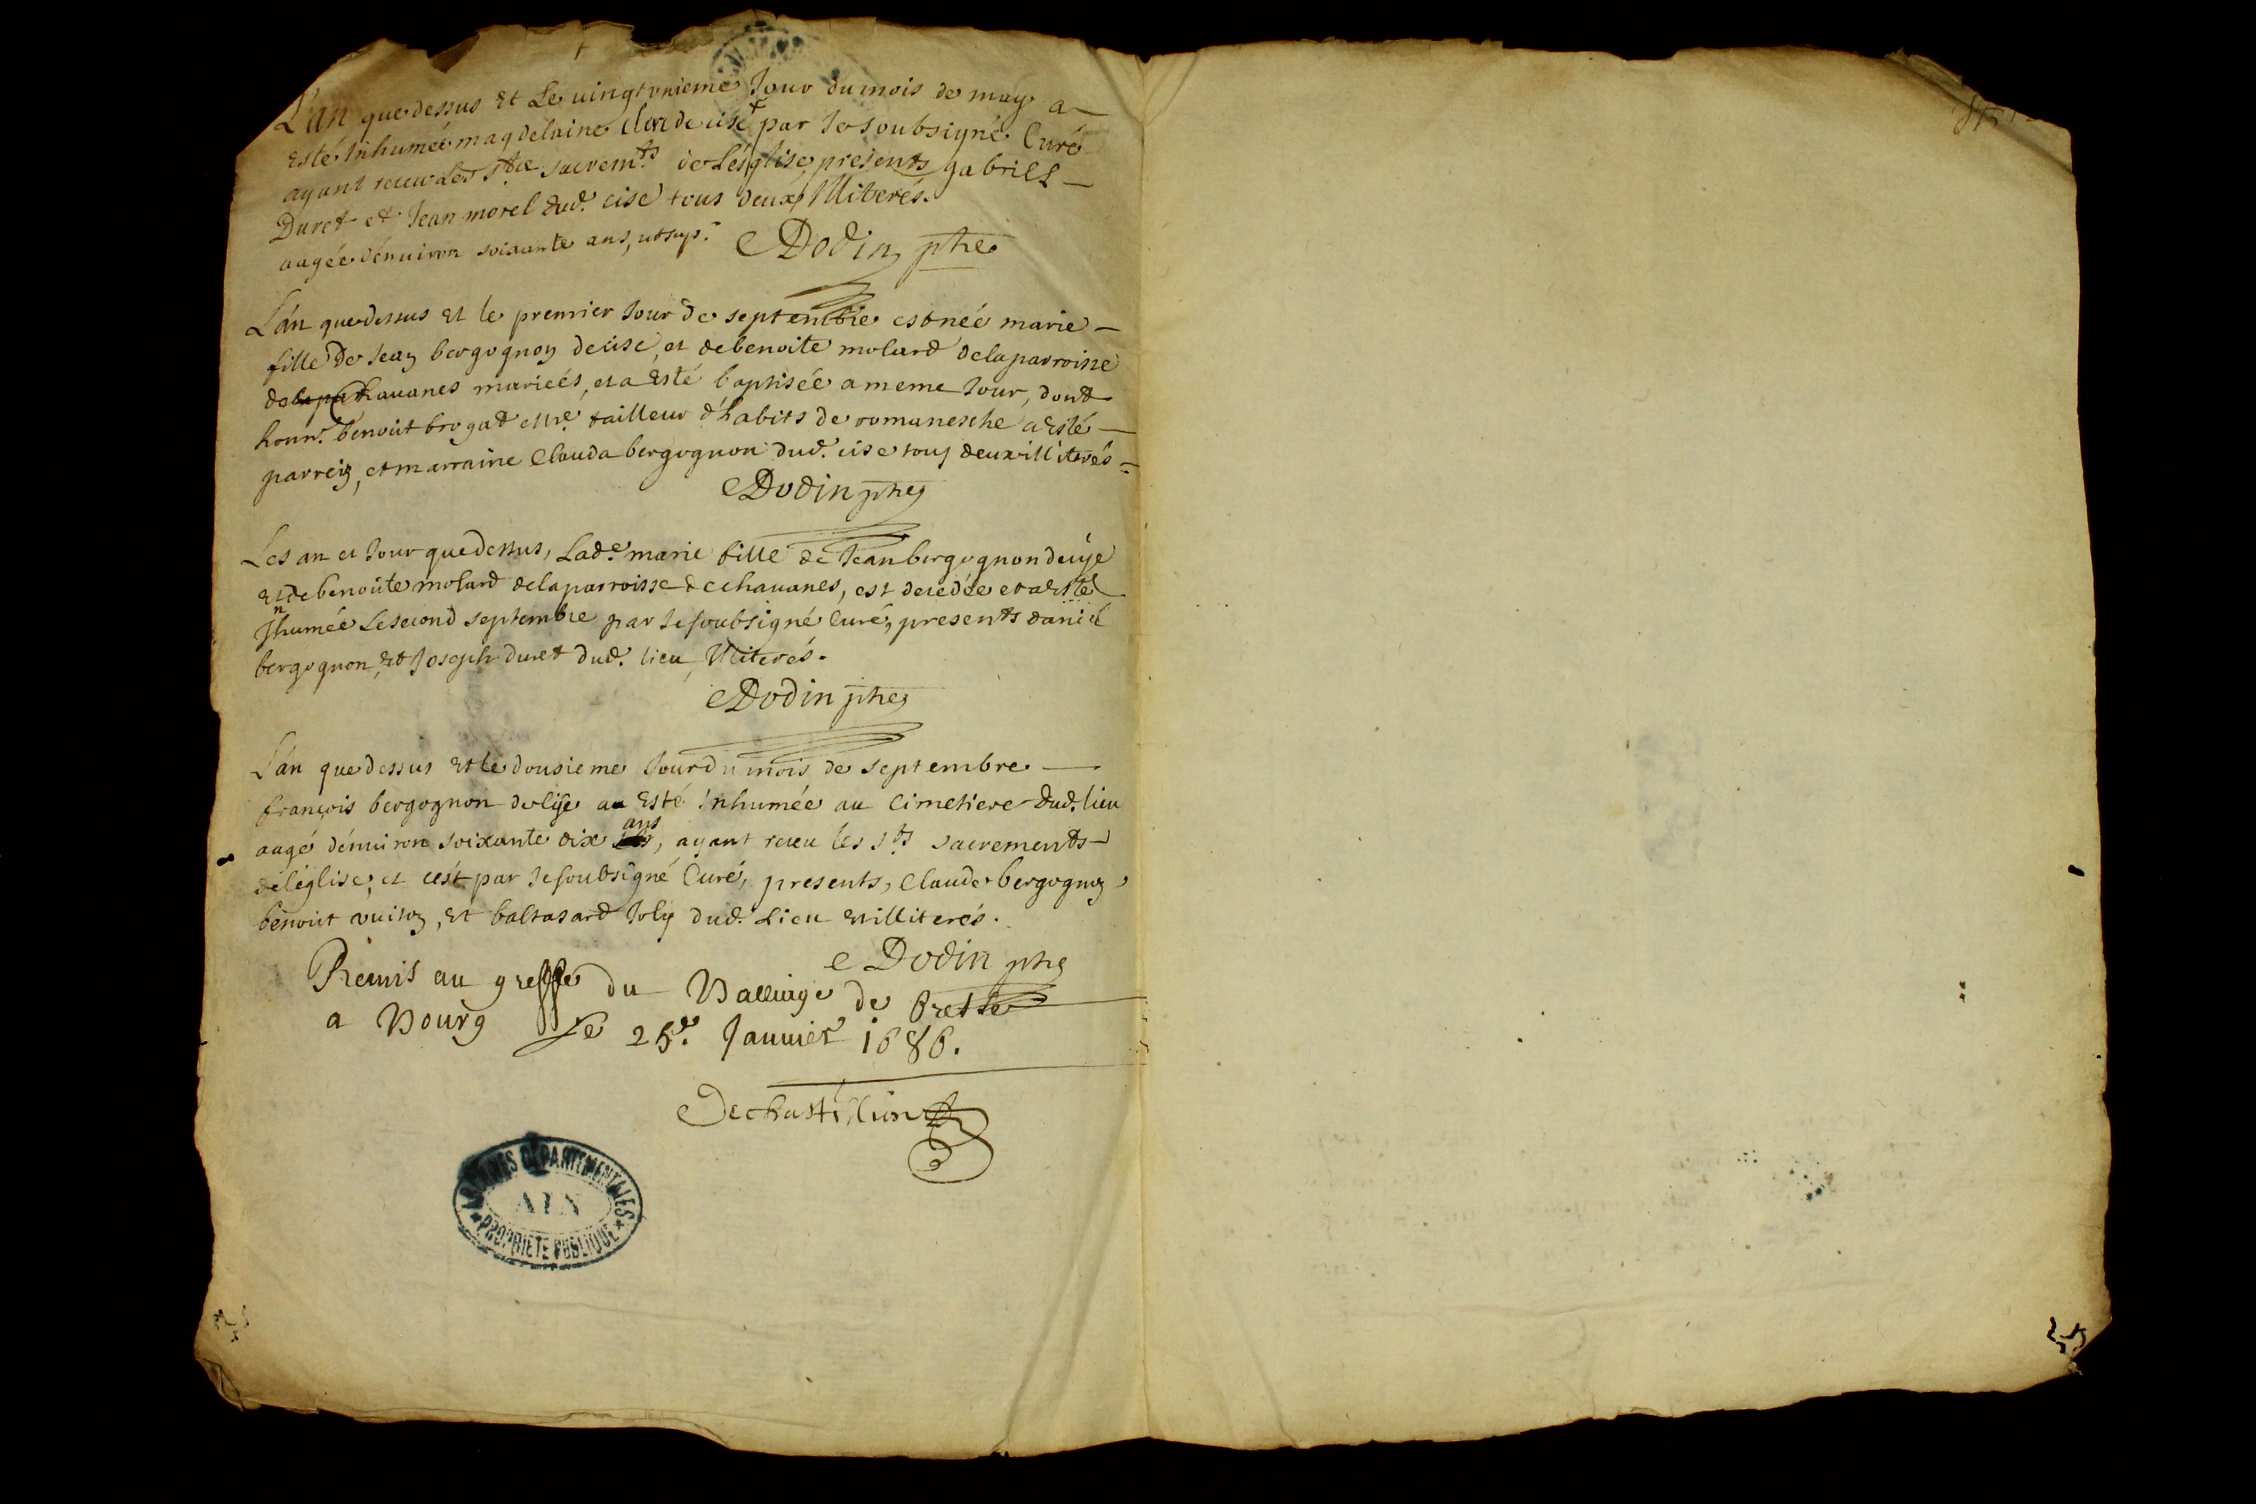 L'an que dessus Et Le vingt vnieme Jour du mois de may a
Esté Inhumée magdelaine de cise par Je soubsigné Curé
ayant receu Les sts sacremts de L'église, presents gabriel
Duret et Jean morel dud. cise tous deux Illiterés.
aagée d'enuiron soixante ans, ut sup.
Dodin ptre
L'an que dessus Et le premier Jour de septembre est née marie
fille De Jean bergognon de cise, et de benoite molard de la parroisse
de chauanes mariés, et a Esté baptisée a meme Jour, dont
honn. benoit brogat me. tailleur d'habits de romanesche a Esté
parrein, et marraine Clauda bergognon dud. cise tous deux illiterés
Dodin ptre
Les an et Jour que dessus, Lade. marie fille de Jean bergognon de cise
Et de benoite molard de la parroisse de chauanes, est decedée et a Esté
Inhumée Le second septembre par Je soubsigné Curé, presents daniel
bergognon, Et Joseph duret dud. lieu, Illiterés.
Dodin ptre
L'an que dessus Et le dousieme Jour du mois de septembre
françois bergognon de cise a Esté Inhumée au Cimetiere dud. lieu
aagé d'enuiron soixante dix ans, ayant receu les sts sacrements
de l'église, et c'est par Je soubsigné Curé, presents, Claude bergognon
benoit vuiton, Et baltasard Joly dud. Lieu Et illiterés.
Dodin ptre
Remis au greffe du Balliage de Bresse
a Bourg Le 25e. Januier 1686.
Dechastillion
ARCHIVES DEPARTEMENTALES
AIN
PROPRIETE PUBLIQUE